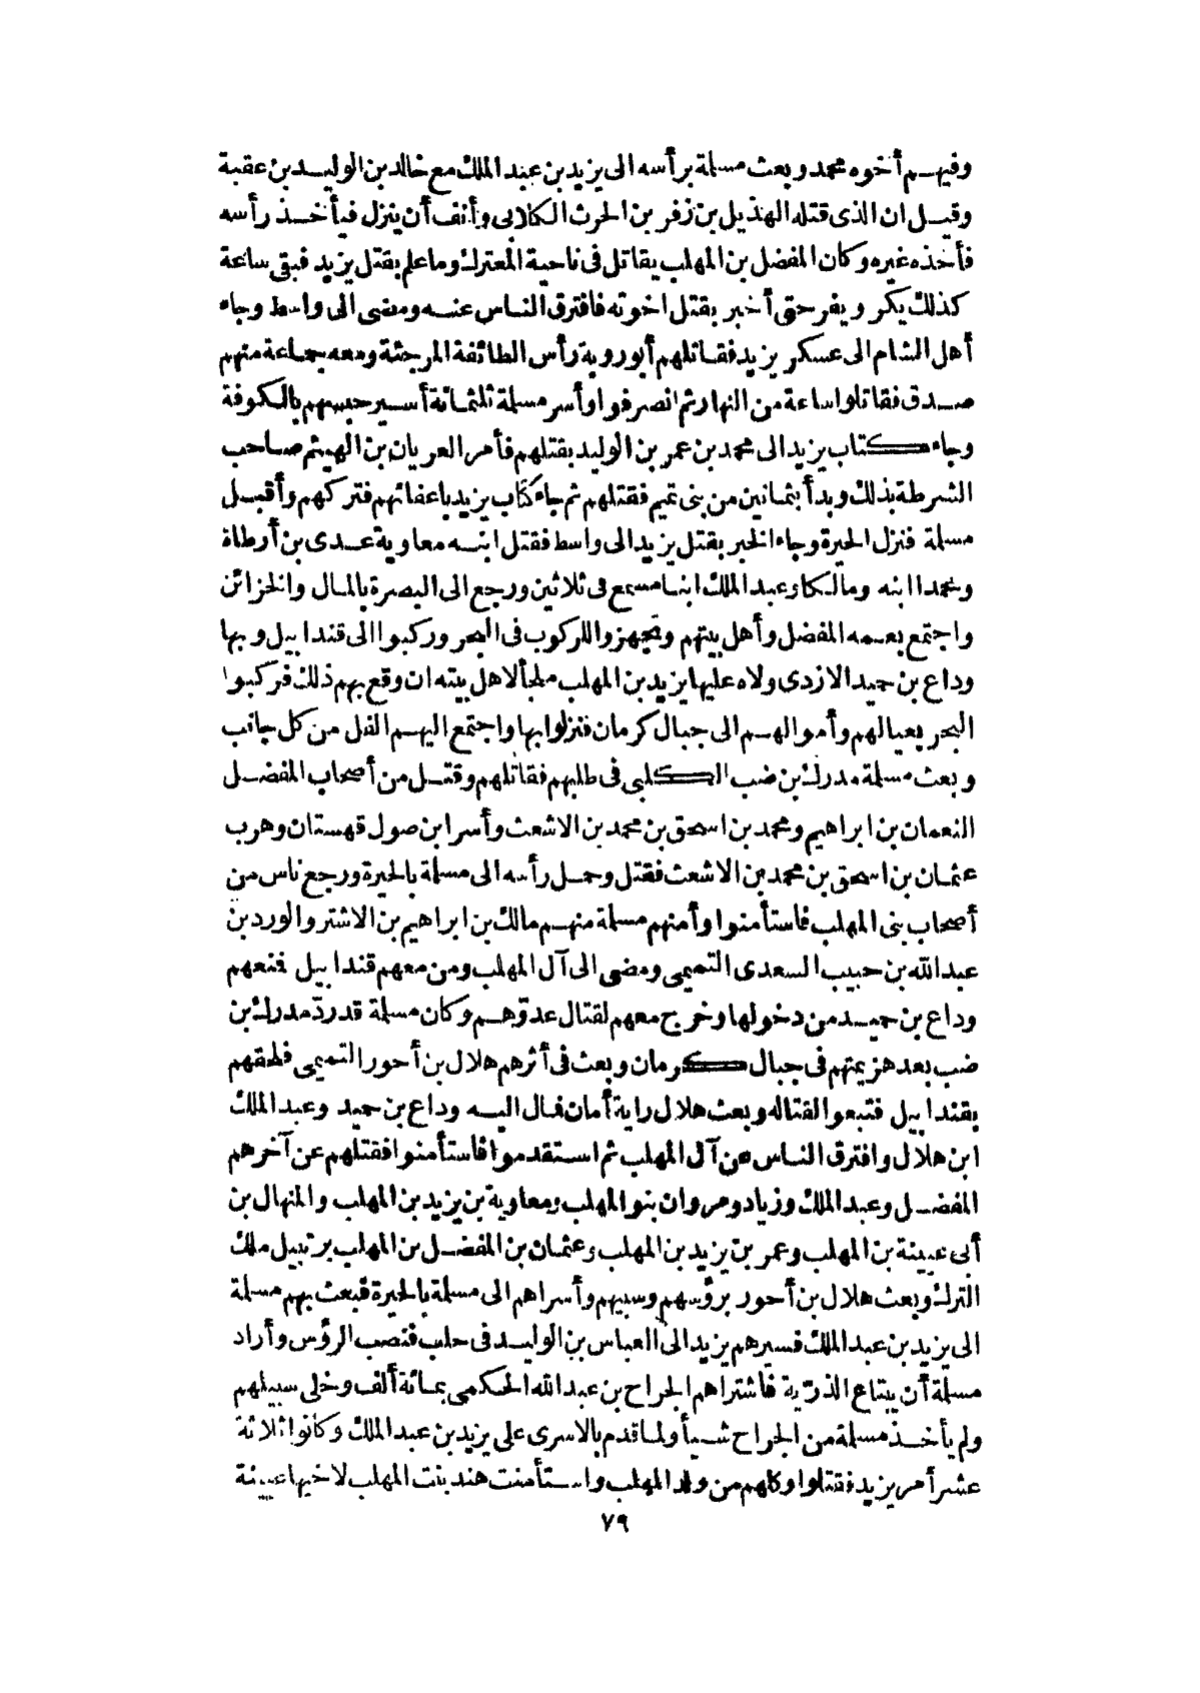 وفيهم أخوه محمد وبعث مسلمة برأسه الى يزيد بن عبد الملك مع خالد بن الوليد بن عقبة
وقيل ان الذى قتله الهذيل بن زفر بن الحرث الكلابى وأنف أن ينزل فيأخذ رأسه
فأخذه غيره وكان المفضل بن المهلب يقاتل فى ناحية المعترك وما علم بقتل يزيد فبقى ساعة
كذلك يكر ويفر حتى أخبر بقتل اخوته فافترق الناس عنه ومضى الى واسط وجاء
أهل الشام الى عسكر يزيد فقاتلهم أبو روبة رأس الطائفة المرجئة ومعه جماعة منهم
صدق فقاتلوا ساعة من النهار ثم انصرفوا وأسر مسلمة ثلثمائة أسير حبسهم بالكوفة
وجاء كتاب يزيد الى محمد بن عمر بن الوليد بقتلهم فأمر العريان بن الهيثم صاحب
الشرطة بذلك وبدأ بثمانين من بنى تميم فقتلهم ثم جاء كتاب يزيد باعفائهم فتركهم وأقبل
مسلمة فنزل الحيرة وجاء الخبر بقتل يزيد الى واسط فقتل ابنه معاوية عدى بن أرطاة
ومحمدا ابنه ومالكا وعبد الملك ابنا مسمع فى ثلاثين ورجع الى البصرة بالمال والخزائن
واجتمع بعمه المفضل وأهل بيتهم وتجهزوا للركوب فى البحر وركبوا الى قندابيل وبها
وداع بن حميد الازدى ولاه عليها يزيد بن المهلب ملجألاهل بيته ان وقع بهم ذلك فركبوا
البحر بعيالهم وأموالهم الى جبال كرمان فنزلوا بها واجتمع اليهم الفل من كل جانب
وبعث مسلمة مدرك بن ضب الكلبى فى طلبهم فقاتلهم وقتل من أصحاب المفضل
النعمان بن ابراهيم ومحمد بن اسحق بن محمد بن الاشعث وأسر ابن صول قهستان وهرب
عثمان بن اسحق بن محمد بن الاشعث فقتل وحمل رأسه الى مسلمة بالحيرة ورجع ناس من
أصحاب بنى المهلب فاستأمنوا وأمنهم مسلمة منهم مالك بن ابراهيم بن الاشتر والورد بن
عبد الله بن حبيب السعدى التميمى ومضى الى آل المهلب ومن معهم قندابيل فنعهم
وداع بن حميد من دخولها وخرج معهم لقتال عدوّهم وكان مسلمة قد ردّ مدرك بن
ضب بعد هزيمتهم فى جبال كرمان وبعث فى أثرهم هلال بن أحور التميمى فلحقهم
بقندابيل فتبعوا لقتاله وبعث هلال راية أمان فمال اليه وداع بن حميد وعبد الملك
ابن هلال وافترق الناس عن آل المهلب ثم استقدموا فاستأمنوا فقتلهم عن آخرهم
المفضل وعبد الملك وزياد ومروان بنو المهلب ومعاوية بن يزيد بن المهلب والمنهال بن
أبى عيينة بن المهلب وعمر بن يزيد بن المهلب وعثمان بن المفضل بن المهلب برتبيل ملك
الترك وبعث هلال بن أحور برؤسهم وسبيهم وأسراهم الى مسلمة بالحيرة فبعث بهم مسلمة
الى يزيد بن عبد الملك فسيرهم يزيد الى العباس بن الوليد فى حلب فنصب الرؤس وأراد
مسلمة أن يبتاع الذرّية فاشتراهم الجراح بن عبد الله الحكمى بمائة ألف وخلى سبيلهم
ولم يأخذ مسلمة من الجراح شيأ ولما قدم بالاسرى على يزيد بن عبد الملك وكانوا ثلاثة
عشر أمر يزيد فقتلوا وكلهم من ولد المهلب واستأمنت هند بنت المهلب لاخيها عيينة
٧٩